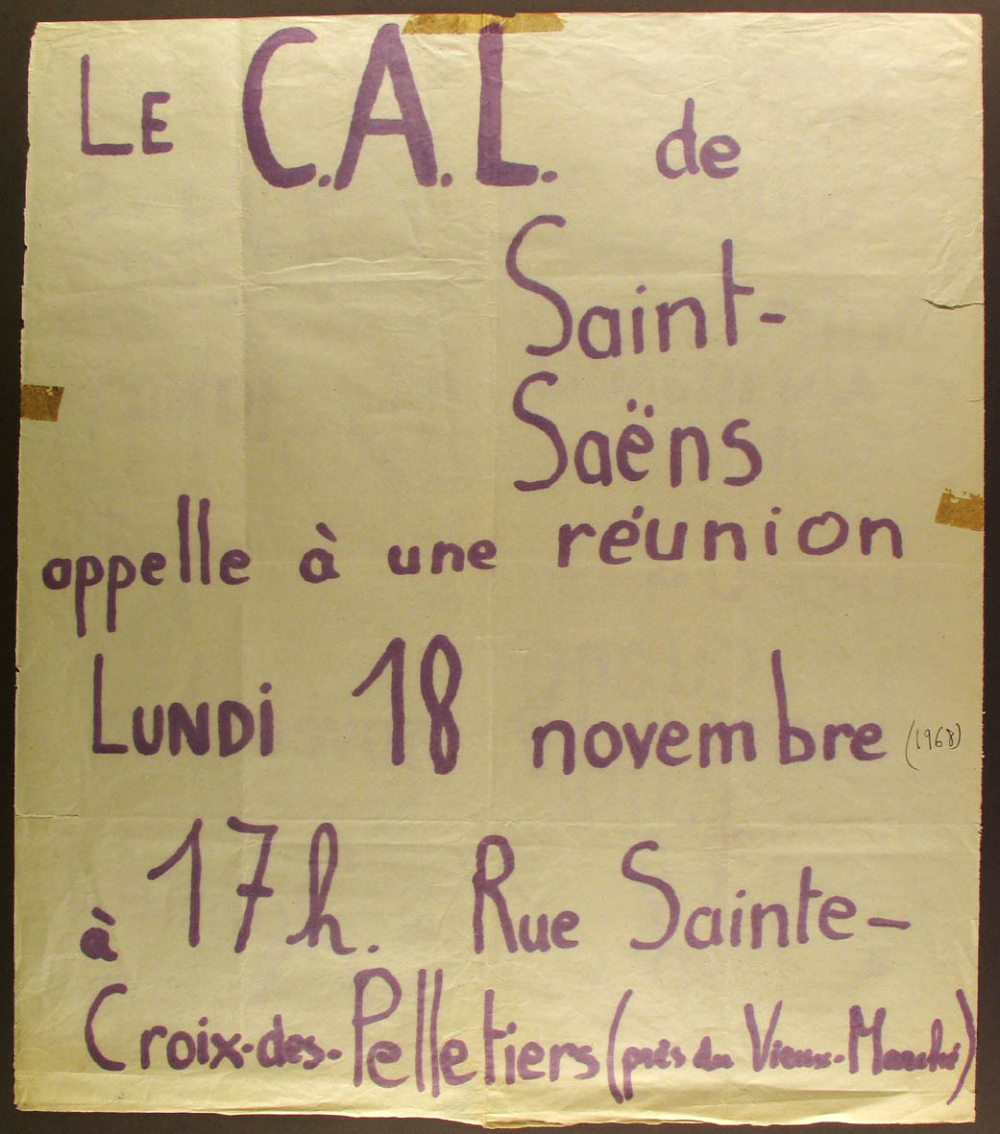 LE C.A.L. de
Saint-
Saëns
appelle à une réunion
LUNDI 18 novembre (1968)
à 17h. Rue Sainte-
Croix-des-Pelletiers (près du Vieux-Marché)